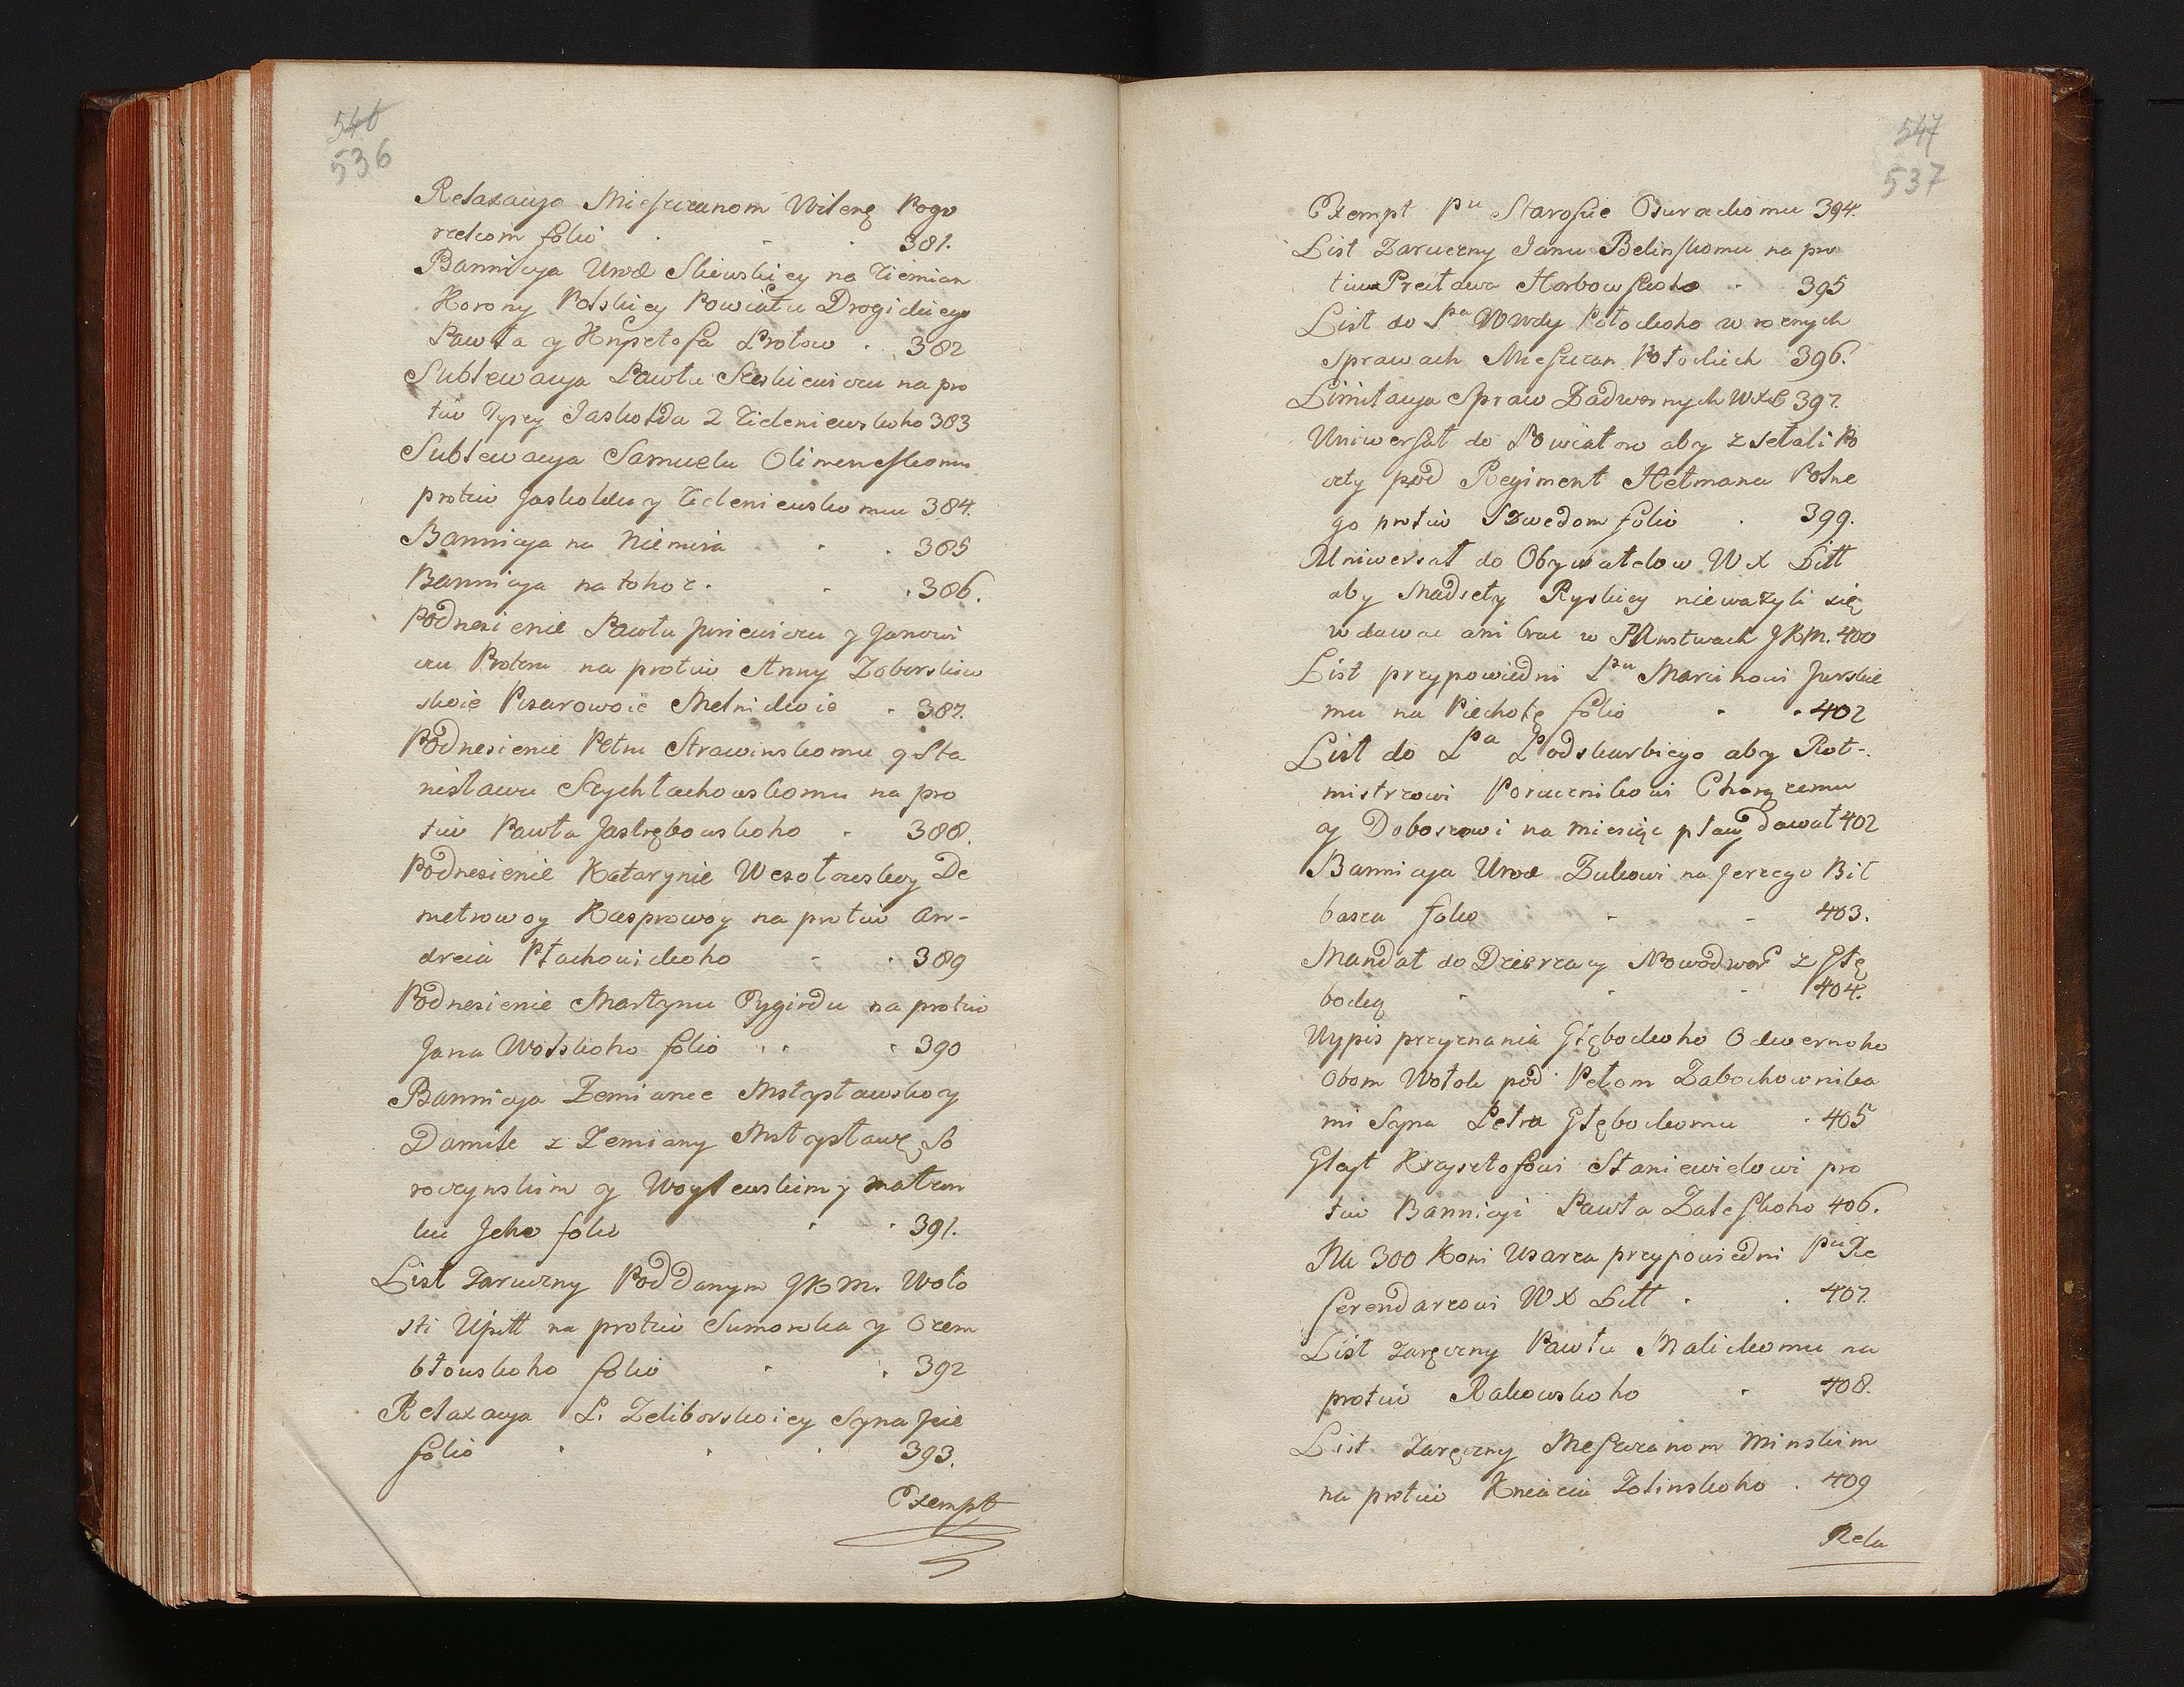 546
536
Relaxacya Mieszczanom Wileńę Pogo
rzelcom folio 381.
Bannicya Urod Sliewskiey na Ziemian
Korony Polskiey Powiatu Drogickiego
Pawła y Krysztofa Protow 382
Sublewacya Pawlu Szaskiewiczu na pro
tiw Jaskołda Z Tideniewskoho 383
Sublewacya Samuelu
protiw Jaskołdu y Tideniewskomu 384.
Bannicya na Niemira 385
Bannicya na tohoż. 386.
Podnesienie Pawłu Juriewiczu y Janowi
czu Protom na protiw Anny Zoborskiw
skoie Pisarowoie Melnickoie 387.
Podnesienie Petru Strawinskomu y Sta
nisławu Szychłachowskomu na pro
tiw Pawła Jastrzębowskoho 388.
Podnesienie Katarynie Wesołowskoy De
metrowoy Kasprowoy na protiw An-
dreia Płachowickoho 389
Podnesienie Martynu Dygirdu na protiw
Jana Wolskoho folio 390
Bannicya Zemiance Mstysławskoy
Damile z Zemiany Mstysławę So
roczynskim y Woyłewskim y małżon
ku Jeho folio 391.
List Zaruczny Poddanym JKM. Woło
sti Upitt na protiw Sumoroka y Ozem
błowskoho folio 392
Relaxacya P. Zeliborskoiey Syna Jeie
folio 393.
Exempt
547
537
Exempt Pu Staroście Ożarackomu 394.
List Zaruczny Janu Belinskomu na pro
tiw Precława Horbowskoho 395
List do Pa Wwdy Połockoho w roznych
Sprawach Mieszczan Połockich 396.
Limitacya Spraw Zadwornych WXL 397.
Uniwersał do Powiatow aby zsełali Po
czty pod Regiment Hetmana Polne
go protiw Szwedom folio 399.
Uniwersał do Obywatelow W X Litt
aby Madsety Ryskiey nieważyli się
wdawac ani brac w Panstwach JKM. 400
List przypowiedni Pau Marcinowi Jurskie
mu na Piechotę folio 402
List do Pa Podskarbiego aby Rot-
mistrzowi Porucznikowi Chorązemu
y Doboszowi na miesiąc płacy dawał 402
Bannicya Urod Zukowi na Jerzego Bil
basza folio 403.
Mandat do Dzierzawcy Nowodwor z Głę
bocką 404.
Wypis przyznania Głębockoho Odwernoho
Obom Wołok pod Petom Zabochownika
mi Syna Petra Głębockomu 405
Gleyt Krzysztofowi Staniewiczowi pro
tiw Bannicyi Pawła Zaleskoho 406.
Na 300 Koni Usarza przypowiedni Pu Re
ferendarzowi WX Litt 407.
List zaręczny Pawłu Malickomu na
protiw Rakowskoho 408.
List Zaręczny Meszczanom Minskim
na protiw Kniazia Zolinskoho 409
Rela